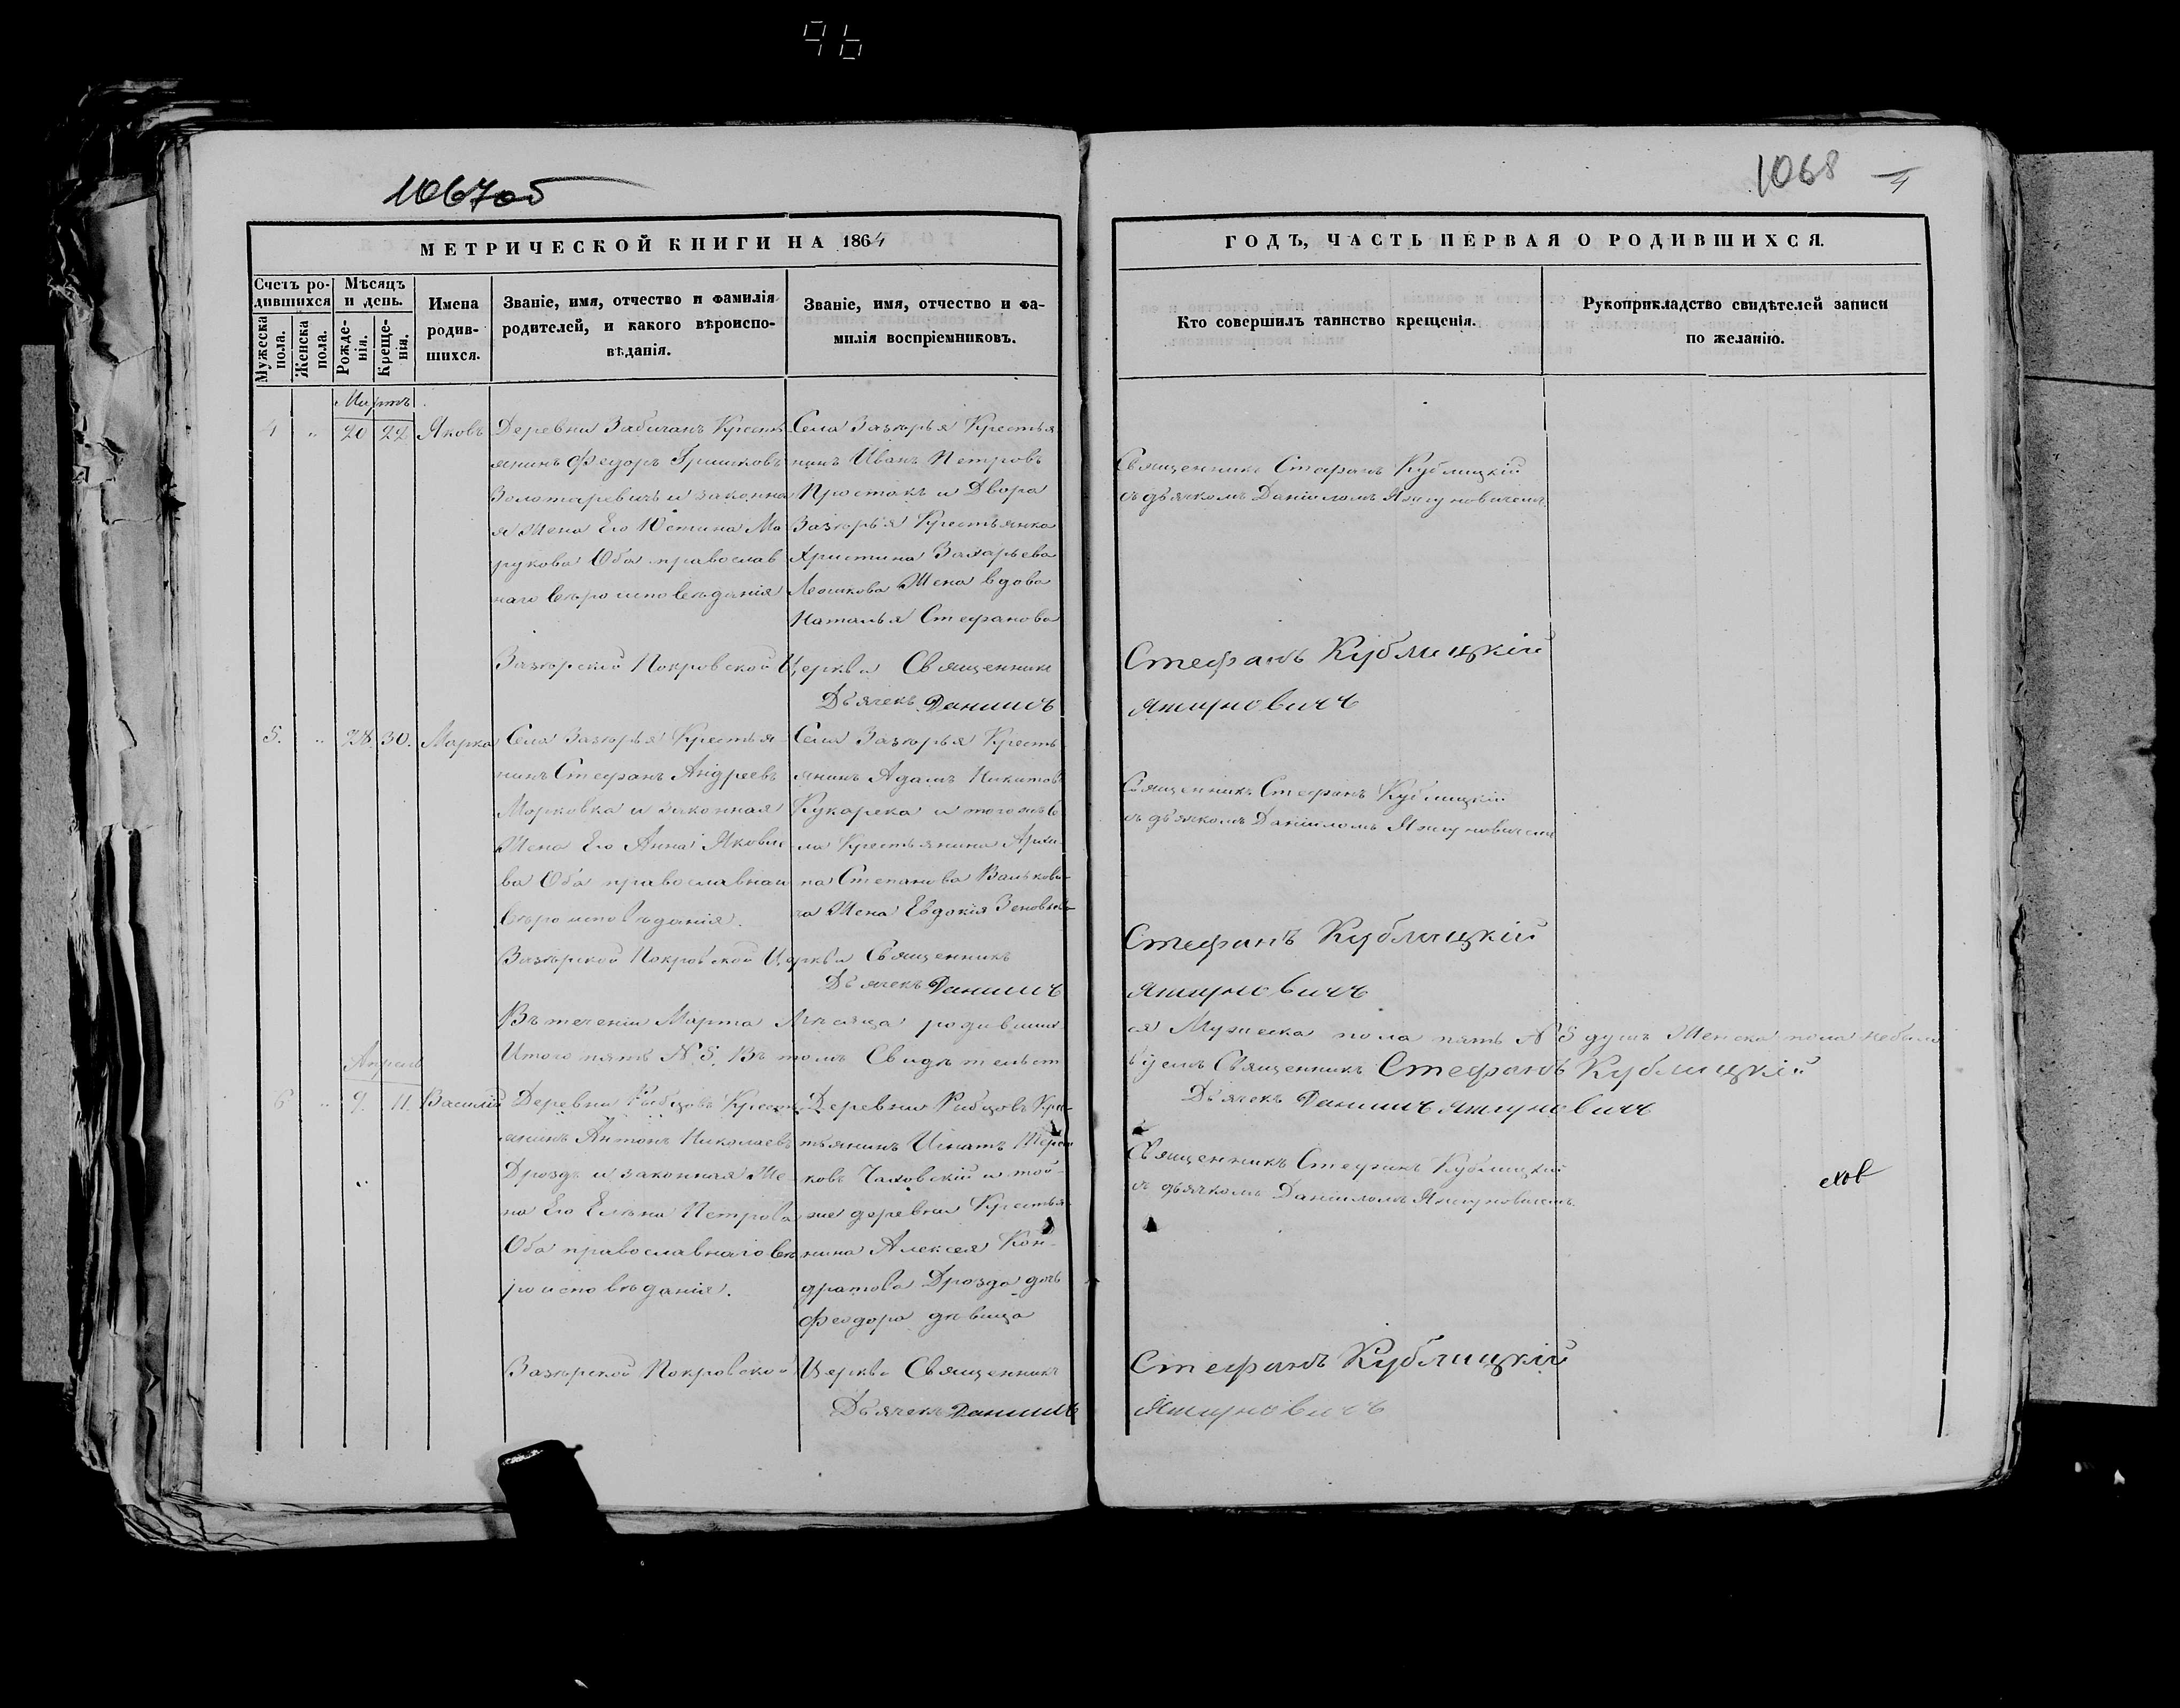 96
1067об
1068
4
МЕТРИЧЕСКОЙ КНИГИ НА 1864
ГОДЪ, ЧАСТЬ ПЕРВАЯ О РОДИВШИХСЯ.
Счетъ ро-
дившихся
Мѣсяцъ
и день.
Мужеска
пола.
Женска
пола.
Рожде-
нія.
Креще-
нія.
Имена
родив-
шихся.
Званіе, имя, отчество и фамилія
родителей, и какого вѣроиспо-
вѣданія.
Званіе, имя, отчество и фа-
милія воспріемниковъ.
Кто совершилъ таинство крещенія.
Рукоприкладство свидѣтелей записи
по желанію.
Мартъ
4 " 20 22 Яковъ
Деревни Забичанъ Кресть
янинъ Федоръ Гришковъ
Золотаревичъ и законна
я Жена Его Юстина Ма
рукова Оба православ
наго вѣроисповѣданія
Села Зазѣрья Крестья
нинъ Иванъ Петровъ
Простакъ и Двора
Зазѣрья Крестьянка
Христина Захарьева
Жена вдова
Наталья Стефанова
Священникъ Стефанъ Кублицкій
съ дьячкомъ Даніиломъ
Зазѣрской Покровской Церкви Священникъ Стефанъ Кублицкій
Дьячекъ Даниилъ
5. " 28. 30. Марка
Села Зазѣрья Крестья
нинъ Стефанъ Андреевъ
Морковка и законная
Жена Его Анна Яковле
ва Оба православнаго
вѣроисповѣданія.
Села Зазѣрья Кресть
янинъ Адамъ Никитовъ
Кукарека и тогожъ Се
ла Крестьянина Архи
па Степанова Валькови
ча Жена Евдокія Зеновьева
Священникъ Стефанъ Кублицкій
съ дьячкомъ Даніиломъ
Зазѣрской Покровской Церкви Священникъ Стефанъ Кублицкій
Дьячекъ Даниилъ
Въ теченіи Марта Мѣсяца родивших
ся Мужеска пола пять № 5 душъ Женска пола небыло
Итого пять № 5. Въ томъ Свидѣтельст
вуемъ Священникъ Стефанъ Кублицкій
Дьячекъ Даниилъ
Апрель
6 " 9. 11. Василій
Деревни Кресть
янинъ Антонъ Николаевъ
Дроздъ и законная Же
на Его Елена Петрова
Оба православнаго вѣ
роисповѣданія.
Деревни Крес
тьянинъ Игнатъ
ковъ Чаховскій и той-
же деревни Крестья
нина Алексея Кон-
дратова Дрозда дочь
Феодора дѣвица
Священникъ Стефанъ Кублицкій
съ дьячкомъ Даніиломъ
Зазѣрской Покровской Церкви Священникъ Стефанъ Кублицкій
Дьячекъ Даниилъ